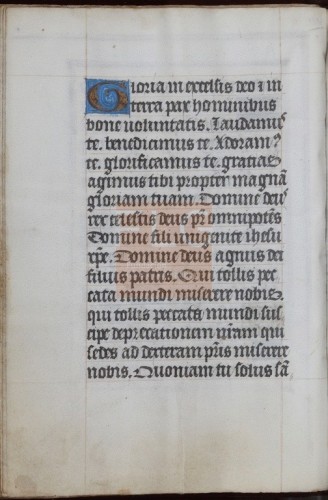 Gloria in excelsis deo ⁊ in
terra pax hominibus
bone uoluntatis. Laudamus
te. benedicimus te. Adoram⁹
te. glorificamus te. gratias
agimus tibi propter magnā
gloriam tuam. Domine deus
rex celestis deus pr̄ omnipotēs
Domine fili unigenite ihesu
xp̄e. Domine deus agnus dei
filius patris. Qui tollis pec
cata mundi miserere nobis.
qui tollis peccata mundi sus
cipe deprecationem nr̄am qui
sedes ad dexteram pr̄is miserere
nobis. Quoniam tu solus sā